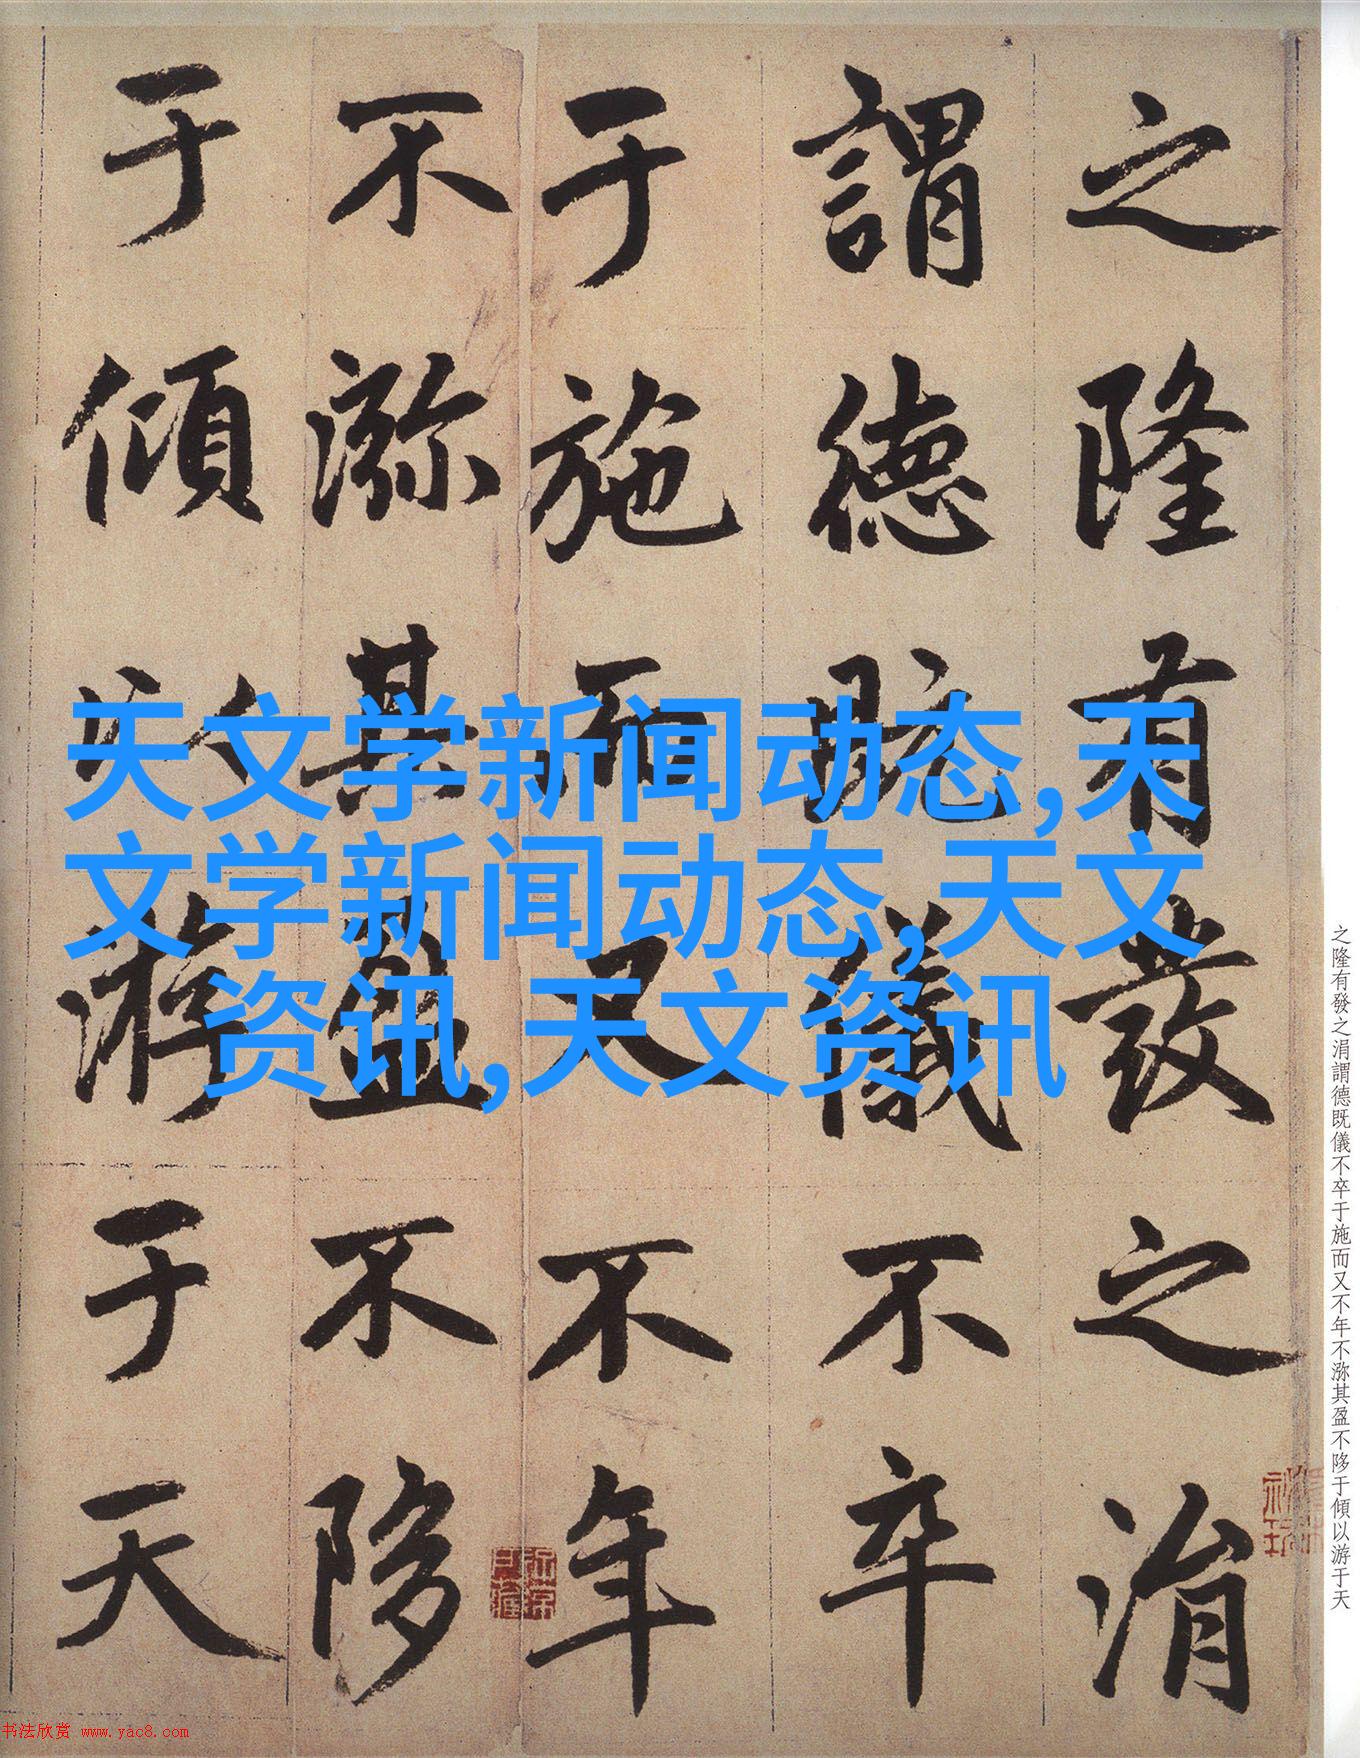 之隆有發之涓
謂德既儀不卒
于施而又不年
不㳽其盈不陊
于傾以游于天
天文学新闻动态,天
文学新闻动态,天文
资讯,天文资讯
之隆有發之涓謂德既儀不卒于施而又不年不㳽其盈不陊于傾以游于天
书法欣赏 www.yac8.com